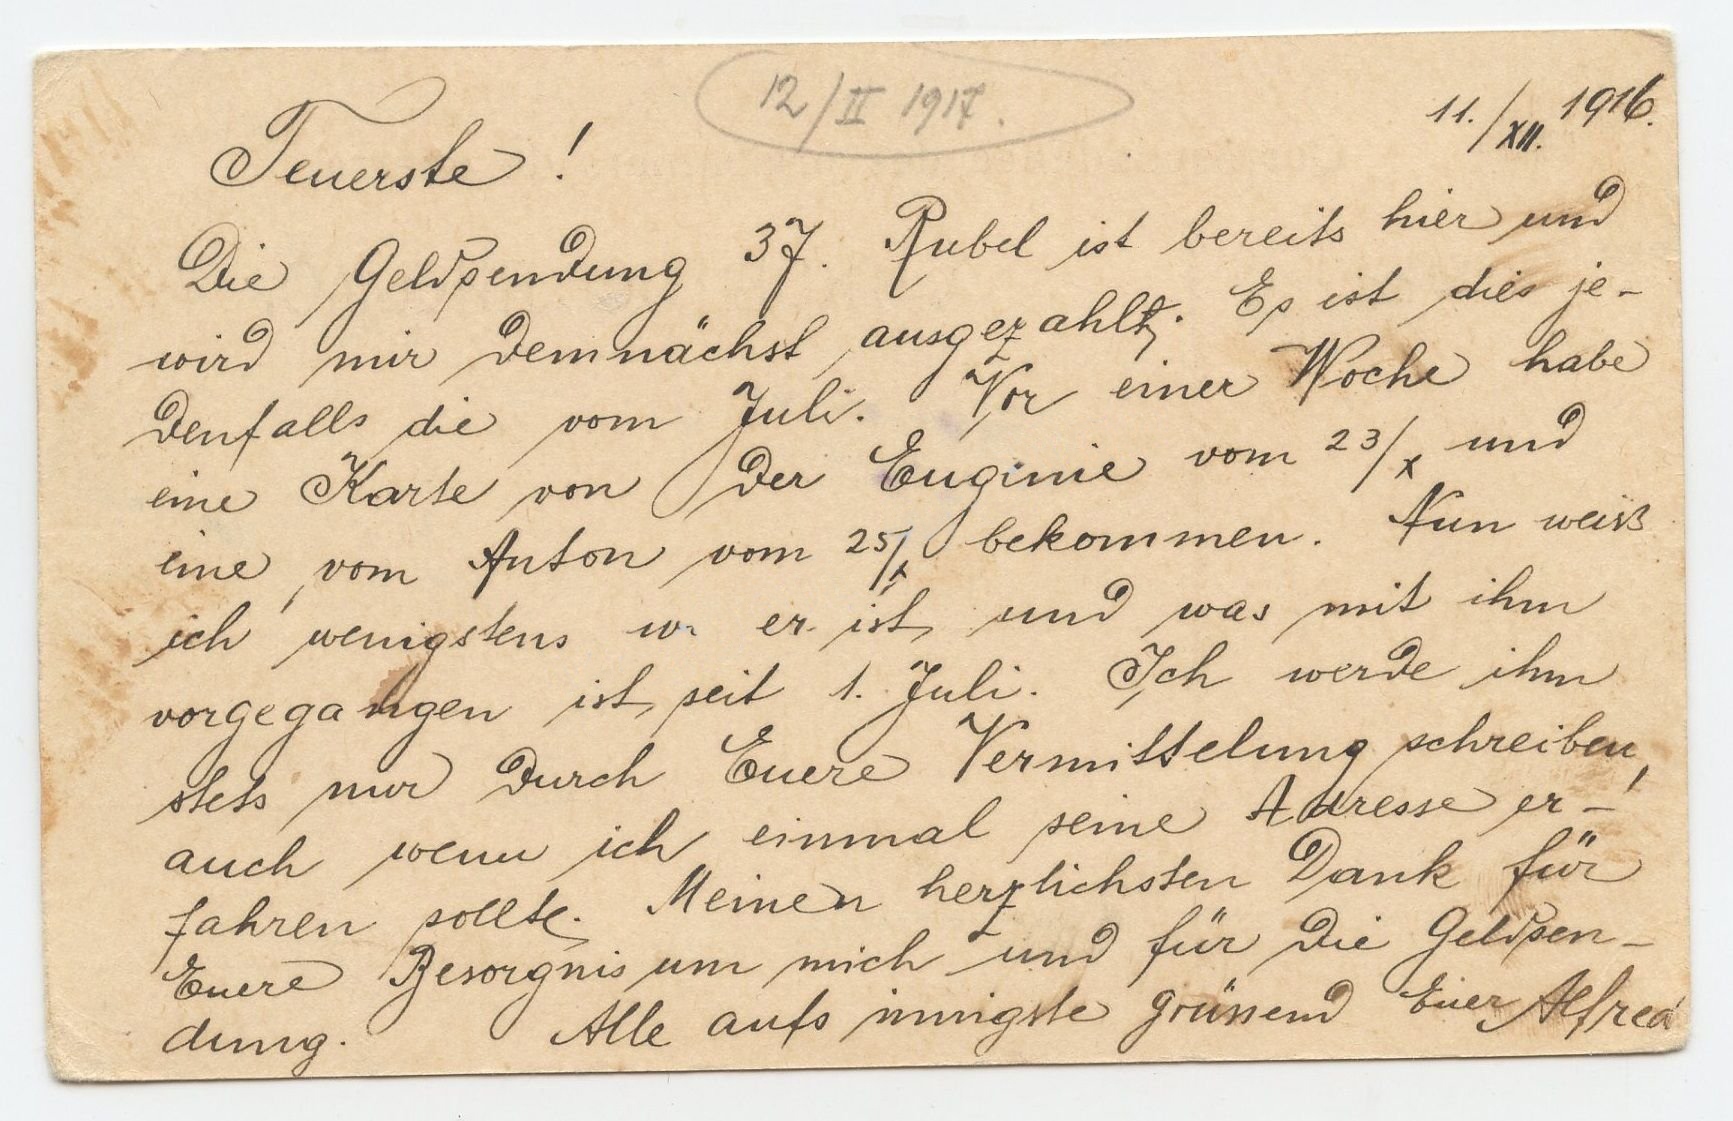 12/II 1917.
11./XII. 1916.
Teuerste!
Die Geldsendung 37. Rubel ist bereits hier und
wird mir demnächst ausgezahlt. Es ist dies je-
denfalls die vom Juli. Vor einer Woche habe
eine Karte von der Euginie vom 23/X und
eine vom Anton vom 25/X bekommen. Nun weiß
ich wenigstens er ist, und was mit ihm
vorgegangen ist, seit 1. Juli. Ich werde ihm
stets nur durch Euere Vermittelung schreiben,
auch wenn ich einmal seine Adresse er-
fahren sollte. Meinen herzlichsten Dank für
Euere Besorgnis um mich und für die Geldsen-
dung. Alle aufs innigste grüssend Euer Alfred